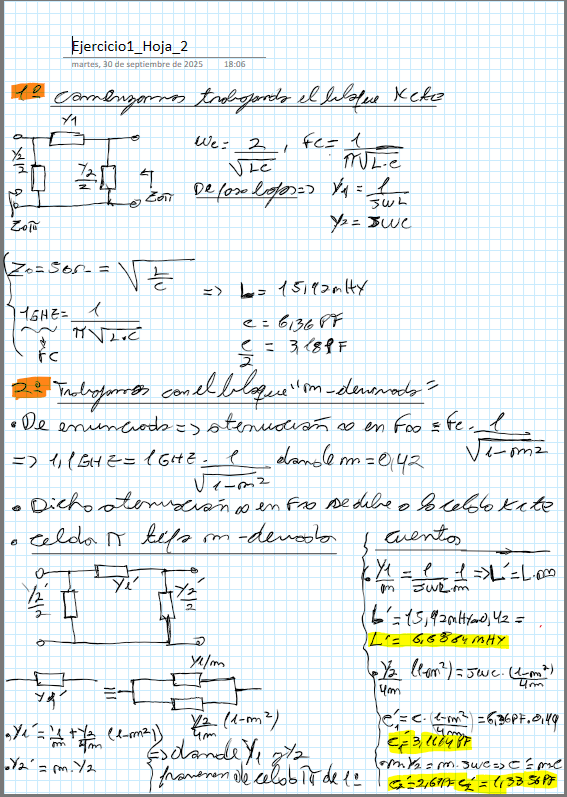 Ejercicio1_Hoja_2
martes, 30 de septiembre de 2025 18:06
1º Comenzamos trabajando el bloque Kcte
Y1
Y2/2 Y2/2 Zoπ
Zoπ
Wc = 2/√LC , Fc = 1/π√L·C
De paso bajo => Y1 = 1/JWL
Y2 = JWC
Zo = 50Ω = √L/C
1GHZ = 1/π√L·C
FC
=> L = 15,92mHY
C = 6,36PF
C/2 = 3,18PF
2º Trabajamos con el bloque "m-derivado"
• De enunciado => atenuación ∞ en F∞ = Fc · 1/√1-m²
=> 1,1GHZ = 1GHZ · 1/√1-m² donde m = 0,42
• Dicha atenuación ∞ en F∞ se debe a la celda Kcte
• Celda π tipo m-derivada
Y1'
Y2'/2 Y2'/2
Y1' ≡ Y1/m
Y2/4m (1-m²)
• Y1' = Y1/m + Y2/4m (1-m²)
• Y2' = m·Y2
=> donde Y1 y Y2
provienen de celda π de 1º
Cuentas
• Y1/m = 1/JWL · 1/m => L' = L·m
L' = 15,92mHY·0,42 =
L' = 6,6864mHY
• Y2/4m (1-m²) = JWC · (1-m²)/4m
C1' = C · (1-m²)/4m = 6,36PF·0,49
C1' = 3,1164PF
• m·Y2 = m·JWC => C' = m·C
C2' = 2,67PF C2'/2 = 1,3356PF